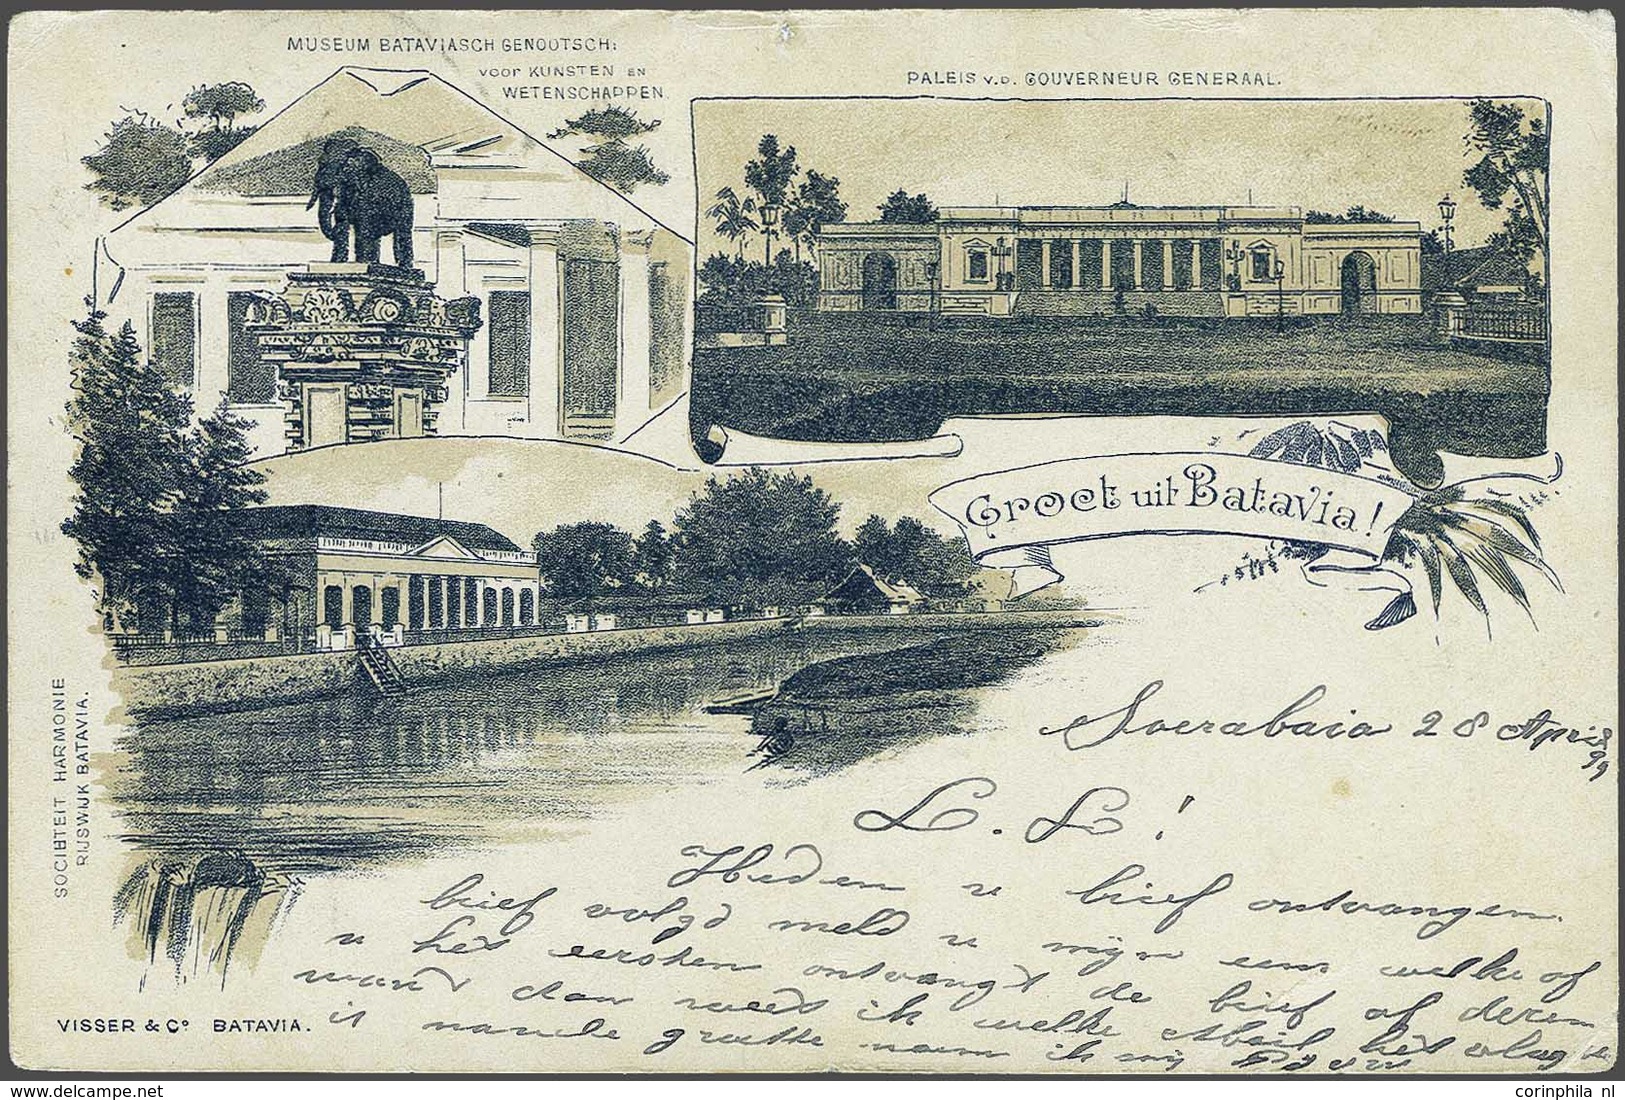 MUSEUM BATAVIASCH GENOOTSCH:
VOOR KUNSTEN EN
WETENSCHAPPEN.
PALEIS V.D. GOUVERNEUR GENERAAL.
Groet uit Batavia!
SOCIETEIT HARMONIE
RIJSWIJK BATAVIA.
Soerabaia 28 April
99
L. S!
Heden u brief ontvangen.
brief volgd meld u mijn een welke of
u het eersten ontvangt de brief of deren
want dan weet ik welke het vlug
is groette ik
VISSER & Co BATAVIA.
corinphila nl